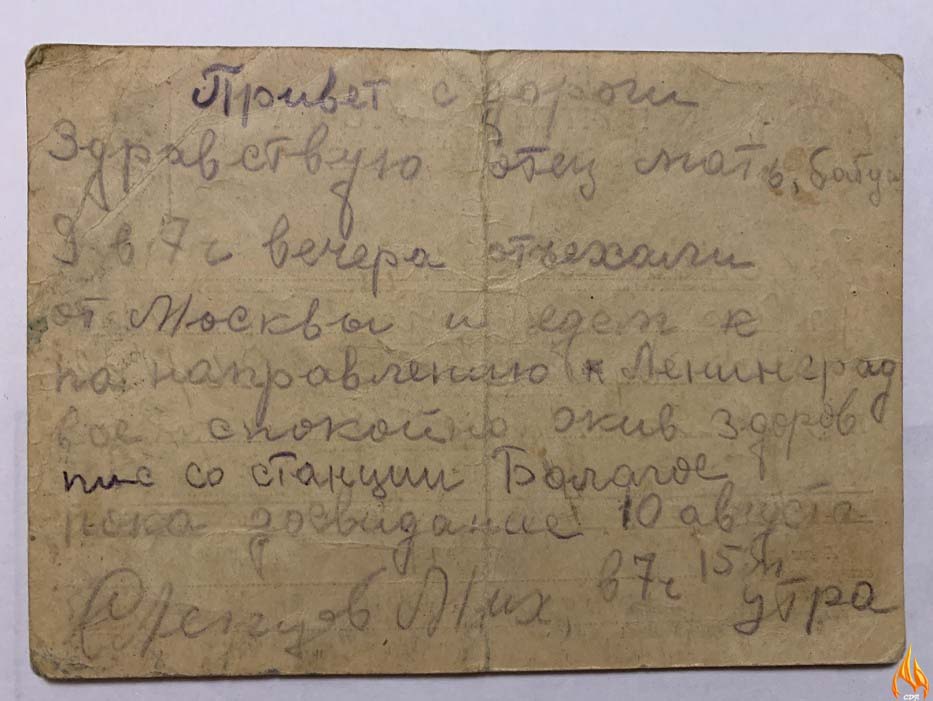 Привет с дороги
Здравствую отец мать,
9 в 7 ч вечера отъехали
от Москвы и едем к
по направлению к Ленинград
все спокойно жив здоров
пис со станции Бологое
пока досвидание 10 августа
Мих, в 7 ч 15 м
утра
CDR